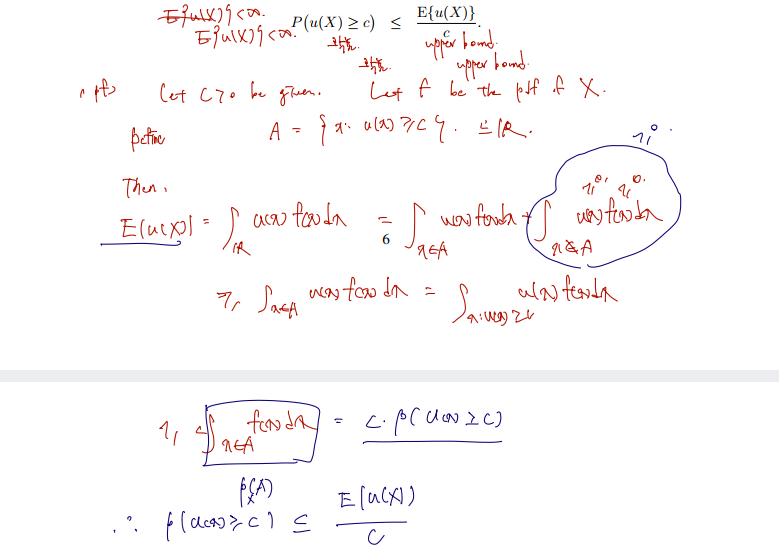 E{u(X)} < ∞.
P(u(X) ≥ c) ≤ E{u(X)} / c.
E{u(X)} < ∞. 확률. upper bound.
확률. upper bound.
pf> Let c > 0 be given. Let f be the pdf of X.
Define A = { x : u(x) ≥ c }. ⊆ ℝ.
≥ 0.
Then, ≥ 0, ≥ 0.
E[u(X)] = ∫_ℝ u(x) f(x) dx = ∫_{x∈A} u(x) f(x) dx + ∫_{x∉A} u(x) f(x) dx
6
≥ ∫_{x∈A} u(x) f(x) dx = ∫_{x: u(x) ≥ c} u(x) f(x) dx
≥ c ∫_{x∈A} f(x) dx = c · P(u(x) ≥ c)
P_X(A)
∴ P(u(x) ≥ c) ≤ E[u(X)] / c